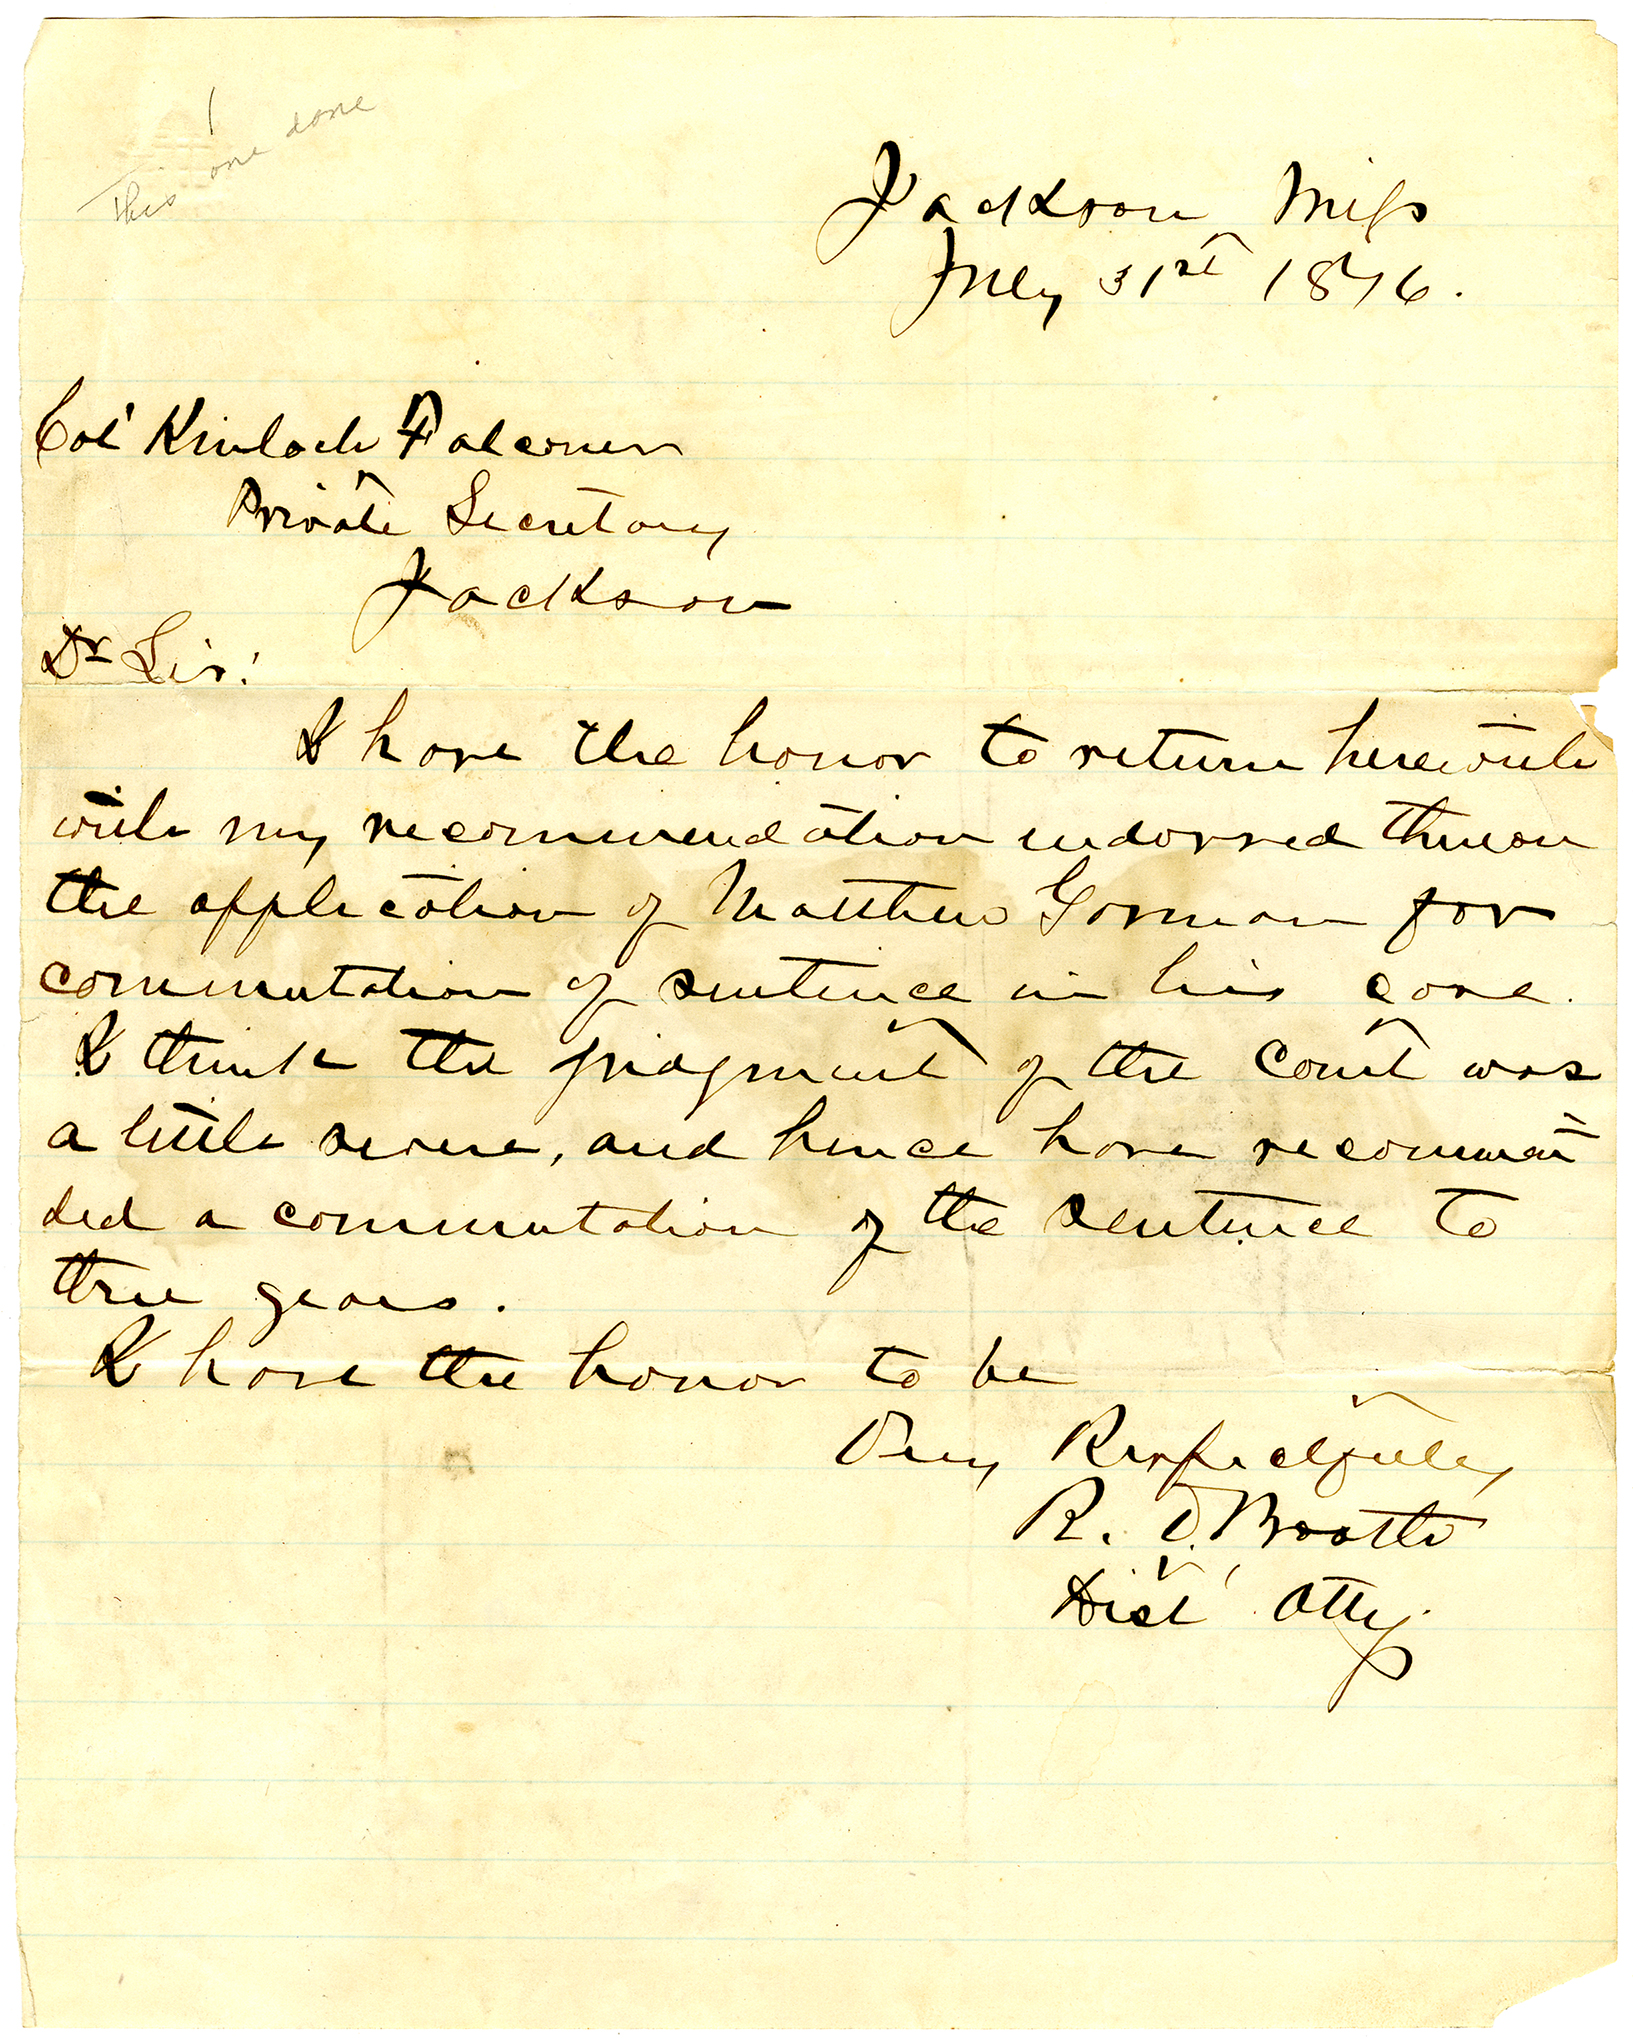 This one done
Jackson Miss
July 31st 1876.
Col Kinloch Falconer
Private Secretary
Jackson
Dr Sir:
I have the honor to return herewith
with my recommendation endorsed thereon
the application of Matthew Gorman for
commutation of sentence in his case.
I think the judgment of the Court was
a little severe, and hence have recommen
ded a commutation of the sentence to
three years.
I have the honor to be
Very Respectfully
R.
Dist Atty.